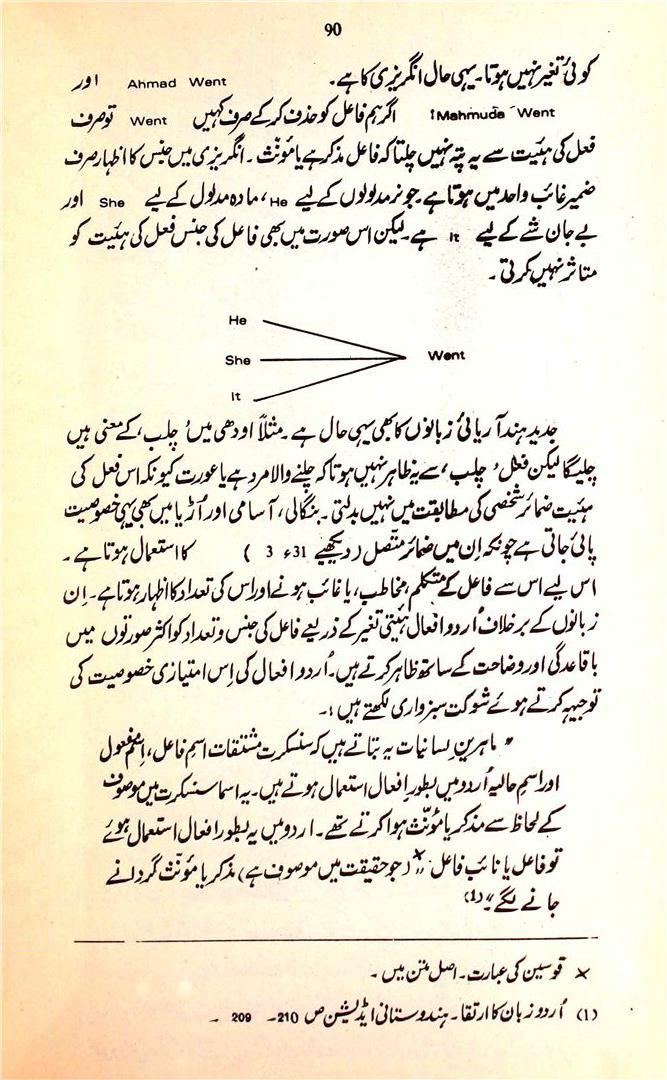 90
کوئی تغیر نہیں ہوتا۔ یہی حال انگریزی کا ہے۔ Ahmad Went اور
Mahmuda Went ! اگر ہم فاعل کو حذف کرکے صرف کہیں Went تو صرف
فعل کی ہئیت سے یہ پتہ نہیں چلتا کہ فاعل مذکر ہے یا مؤنث۔ انگریزی میں جنس کا اظہار صرف
ضمیر غائب واحد میں ہوتا ہے۔ جو نر مدلولوں کے لیے He، مادہ مدلول کے لیے She اور
بے جان شے کے لیے It ہے۔ لیکن اس صورت میں بھی فاعل کی جنس فعل کی ہئیت کو
متاثر نہیں کرتی۔
He
She
It
Went
جدید ہند آریائی زبانوں کا بھی یہی حال ہے۔ مثلاً اودھی میں ' چلب ' کے معنی ہیں
چلیگا لیکن فعل ' چلب ' سے یہ ظاہر نہیں ہوتا کہ چلنے والا مرد ہے یا عورت کیونکہ اس فعل کی
ہئیت ضمائر شخصی کی مطابقت میں نہیں بدلتی۔ بنگالی، آسامی اور اُڑیا میں بھی یہی خصوصیت
پائی جاتی ہے چونکہ اِن میں ضمائر متّصل ( دیکھیے 31ء 3 ) کا استعمال ہوتا ہے۔
اس لیے اس سے فاعل کے متکلم، مخاطب، یا غائب ہونے اور اس کی تعداد کا اظہار ہوتا ہے۔ اِن
زبانوں کے برخلاف اُردو افعال ہیئتی تغیر کے ذریعے فاعل کی جنس و تعداد کو اکثر صورتوں میں
باقاعدگی اور وضاحت کے ساتھ ظاہر کرتے ہیں۔ اُردو افعال کی اِس امتیازی خصوصیت کی
توجیہہ کرتے ہوئے شوکت سبزواری لکھتے ہیں :۔
" ماہرینِ لسانیات یہ بتاتے ہیں کہ سنسکرت مشتقات اسمِ فاعل، اسمِ مفعول
اور اسمِ حالیہ اُردو میں بطور افعال استعمال ہوتے ہیں۔ یہ اسما سنسکرت میں موصوف
کے لحاظ سے مذکر یا مؤنّث ہوا کرتے تھے۔ اردو میں یہ بطور افعال استعمال ہوئے
تو فاعل یا نائب فاعل × ( جو حقیقت میں موصوف ہے ) مذکر یا مؤنّث گردانے
جانے لگے۔" (1)
× قوسین کی عبارت۔ اصل متن میں۔
(1) اُردو زبان کا ارتقا۔ ہندوستانی ایڈیشن ص 210- 209 -